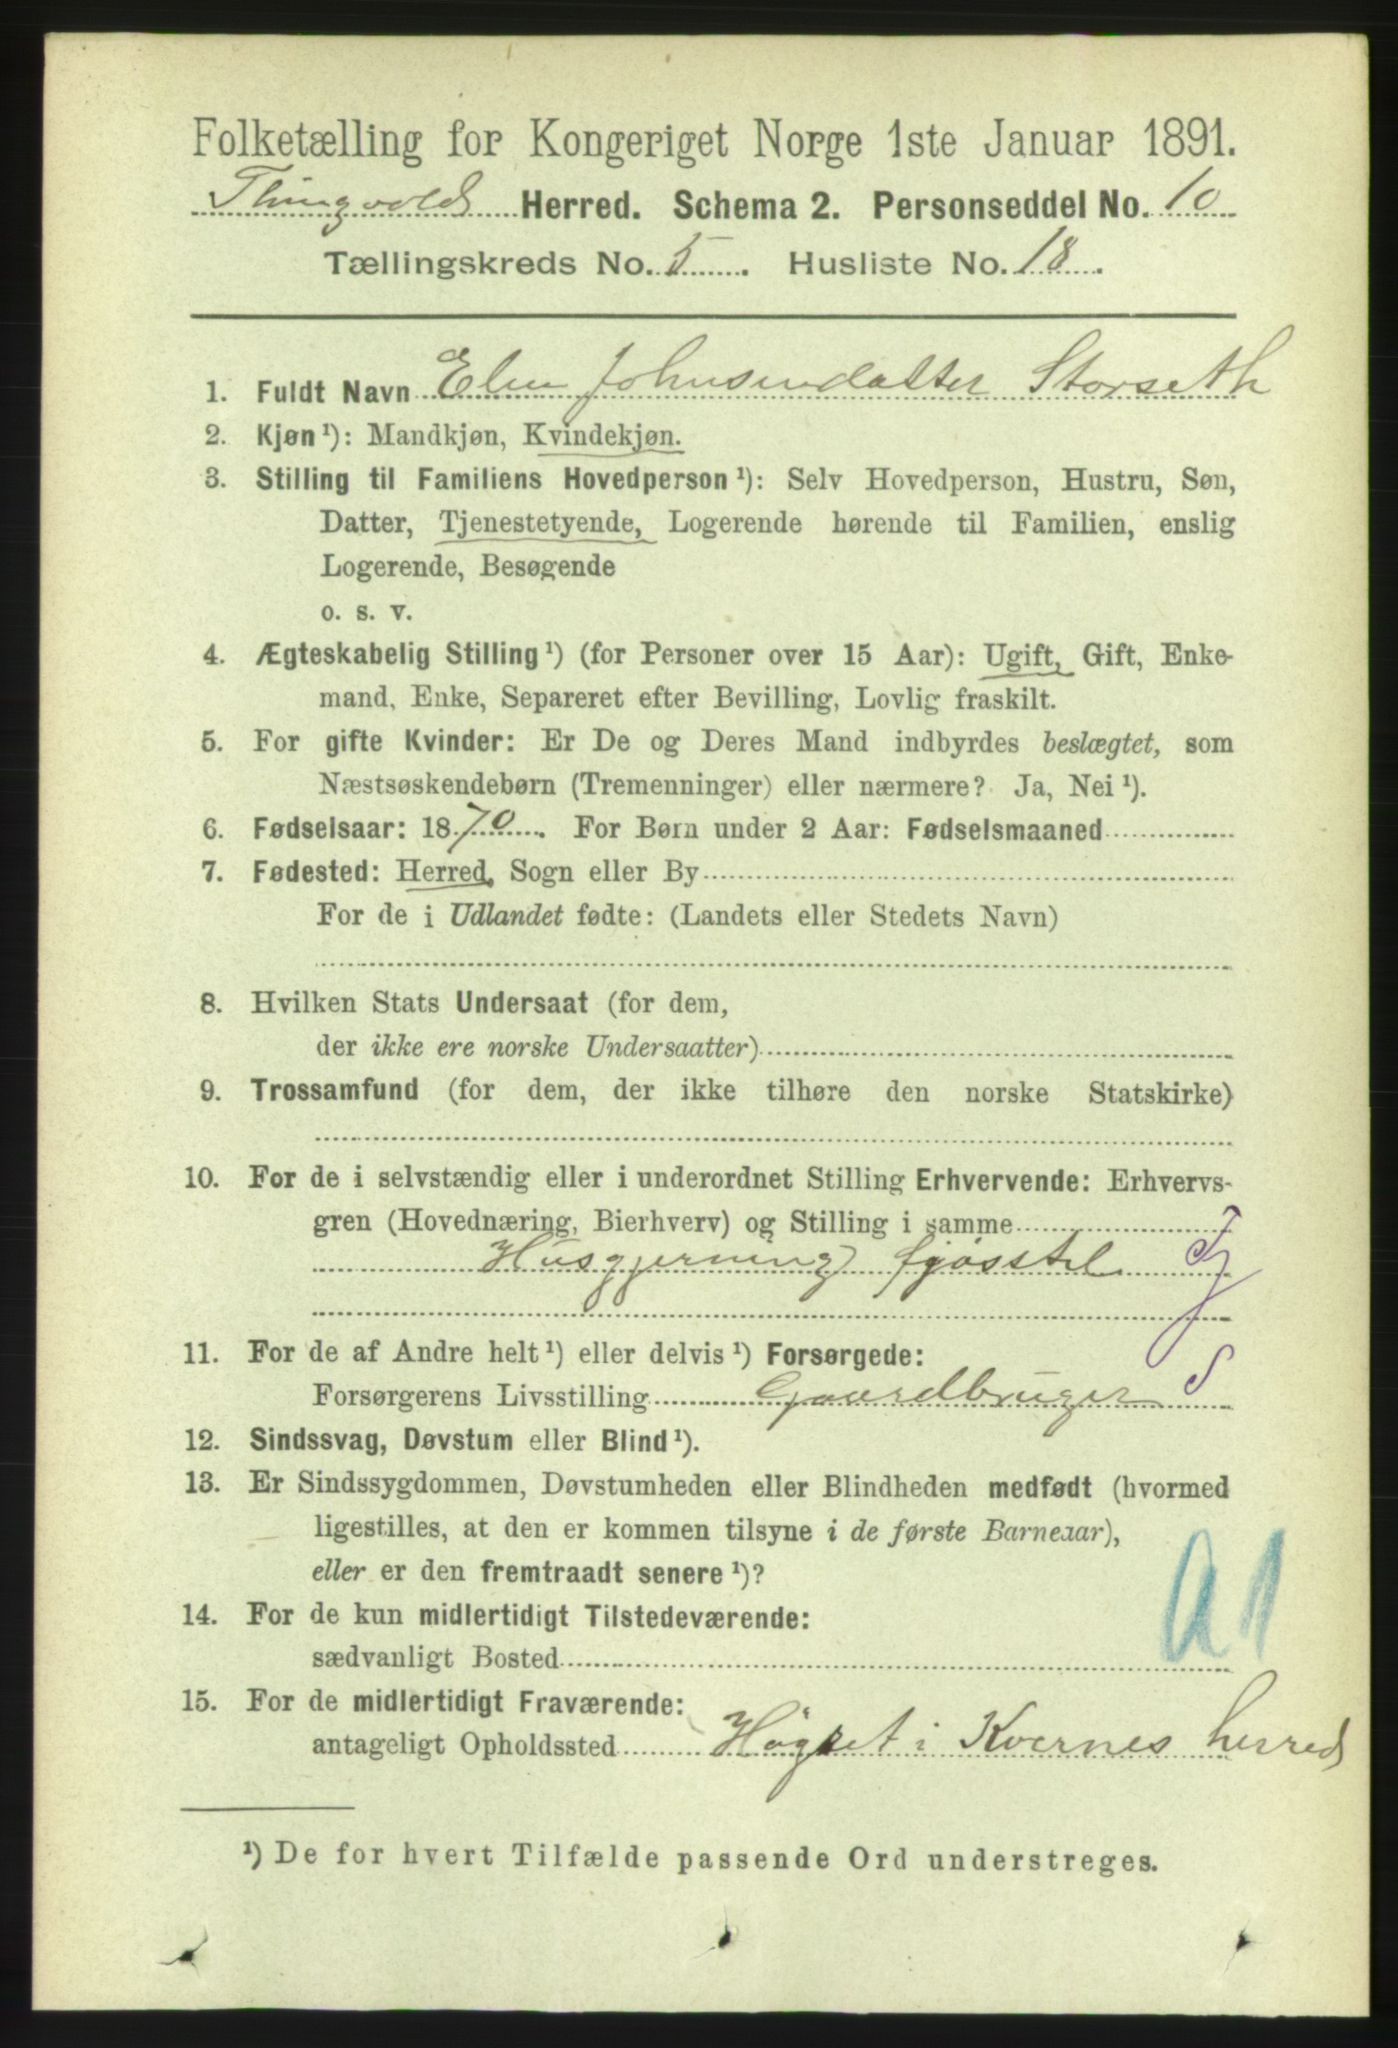 Folketælling for Kongeriget Norge 1ste Januar 1891.
Thingvolds Herred. Schema 2. Personseddel No. 10
Tællingskreds No. 5. Husliste No. 18.
1. Fuldt Navn Elen Johnsendatter Storseth
2. Kjøn ¹): Mandkjøn, Kvindekjøn.
3. Stilling til Familiens Hovedperson ¹): Selv Hovedperson, Hustru, Søn,
Datter, Tjenestetyende, Logerende hørende til Familien, enslig
Logerende, Besøgende
o. s. v.
4. Ægteskabelig Stilling ¹) (for Personer over 15 Aar): Ugift, Gift, Enke-
mand, Enke, Separeret efter Bevilling, Lovlig fraskilt.
5. For gifte Kvinder: Er De og Deres Mand indbyrdes beslægtet, som
Næstsøskendebørn (Tremenninger) eller nærmere? Ja, Nei ¹).
6. Fødselsaar: 1870. For Børn under 2 Aar: Fødselsmaaned
7. Fødested: Herred, Sogn eller By
For de i Udlandet fødte: (Landets eller Stedets Navn)
8. Hvilken Stats Undersaat (for dem,
der ikke ere norske Undersaatter)
9. Trossamfund (for dem, der ikke tilhøre den norske Statskirke)
10. For de i selvstændig eller i underordnet Stilling Erhvervende: Erhvervs-
gren (Hovednæring, Bierhverv) og Stilling i samme
Husgjerning fjøsstel Fj
11. For de af Andre helt ¹) eller delvis ¹) Forsørgede:
Forsørgerens Livsstilling Gaardbruger S
12. Sindssvag, Døvstum eller Blind ¹).
13. Er Sindssygdommen, Døvstumheden eller Blindheden medfødt (hvormed
ligestilles, at den er kommen tilsyne i de første Barneaar),
eller er den fremtraadt senere ¹)?
14. For de kun midlertidigt Tilstedeværende:
sædvanligt Bosted
a 1
15. For de midlertidigt Fraværende:
antageligt Opholdssted Högset i Kvernes herred
¹) De for hvert Tilfælde passende Ord understreges.